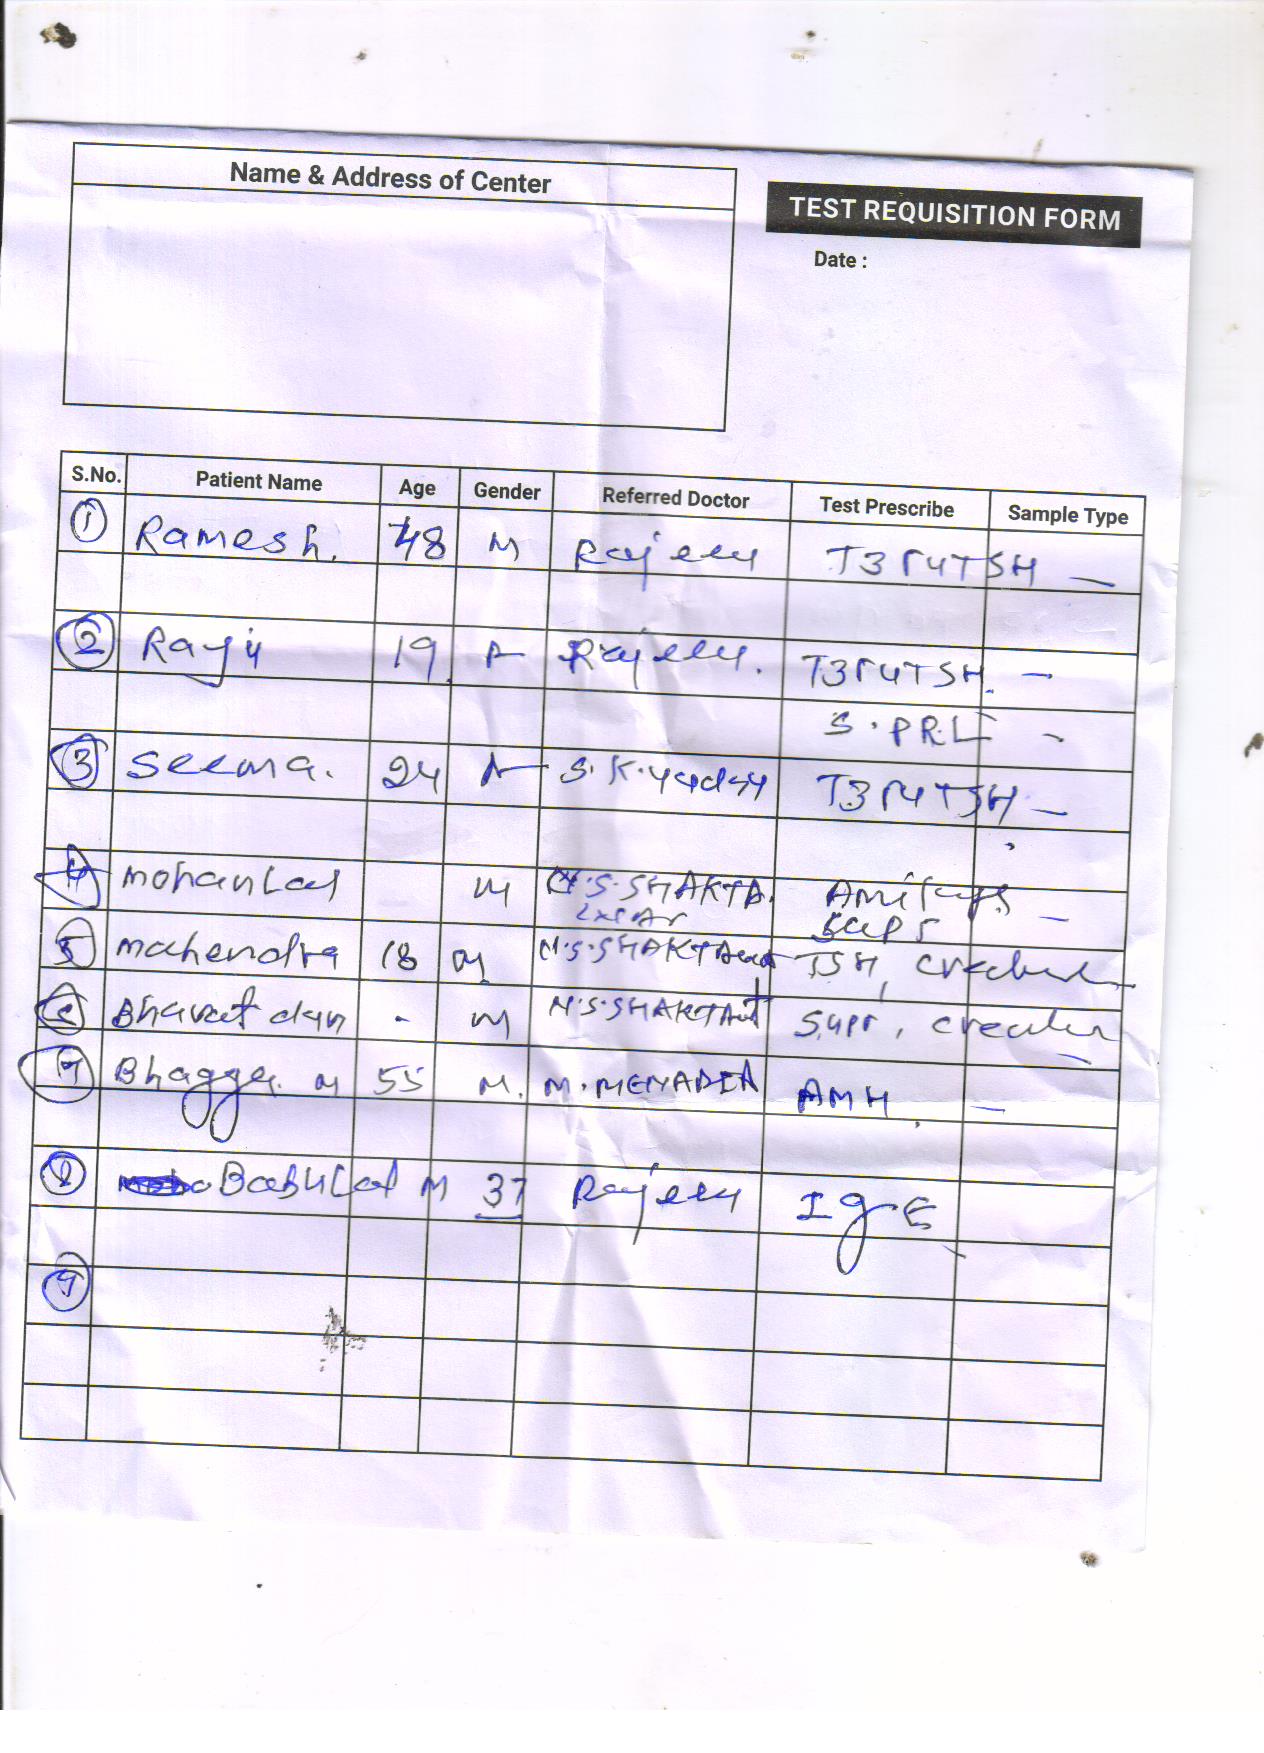 Name & Address of Center
TEST REQUISITION FORM
Date :
S.No. Patient Name Age Gender Referred Doctor Test Prescribe Sample Type
1 Ramesh. 48 M Rajeev T3T4TSH —
2 Raju 19 Rajeev. T3T4TSH. —
S.PRL -
3 Seema. 24 S.K.yadav T3T4TSH —
4 mohanLal M N.S.SHAKTA.
5 mahendra 18 M N.S.SHAKTA TSH,
6 Bharat dan - M N.S.SHAKTA
7 55 M. M.MENADEA AMH. —
8 BabuLal M 37 Rajeev IgE
9